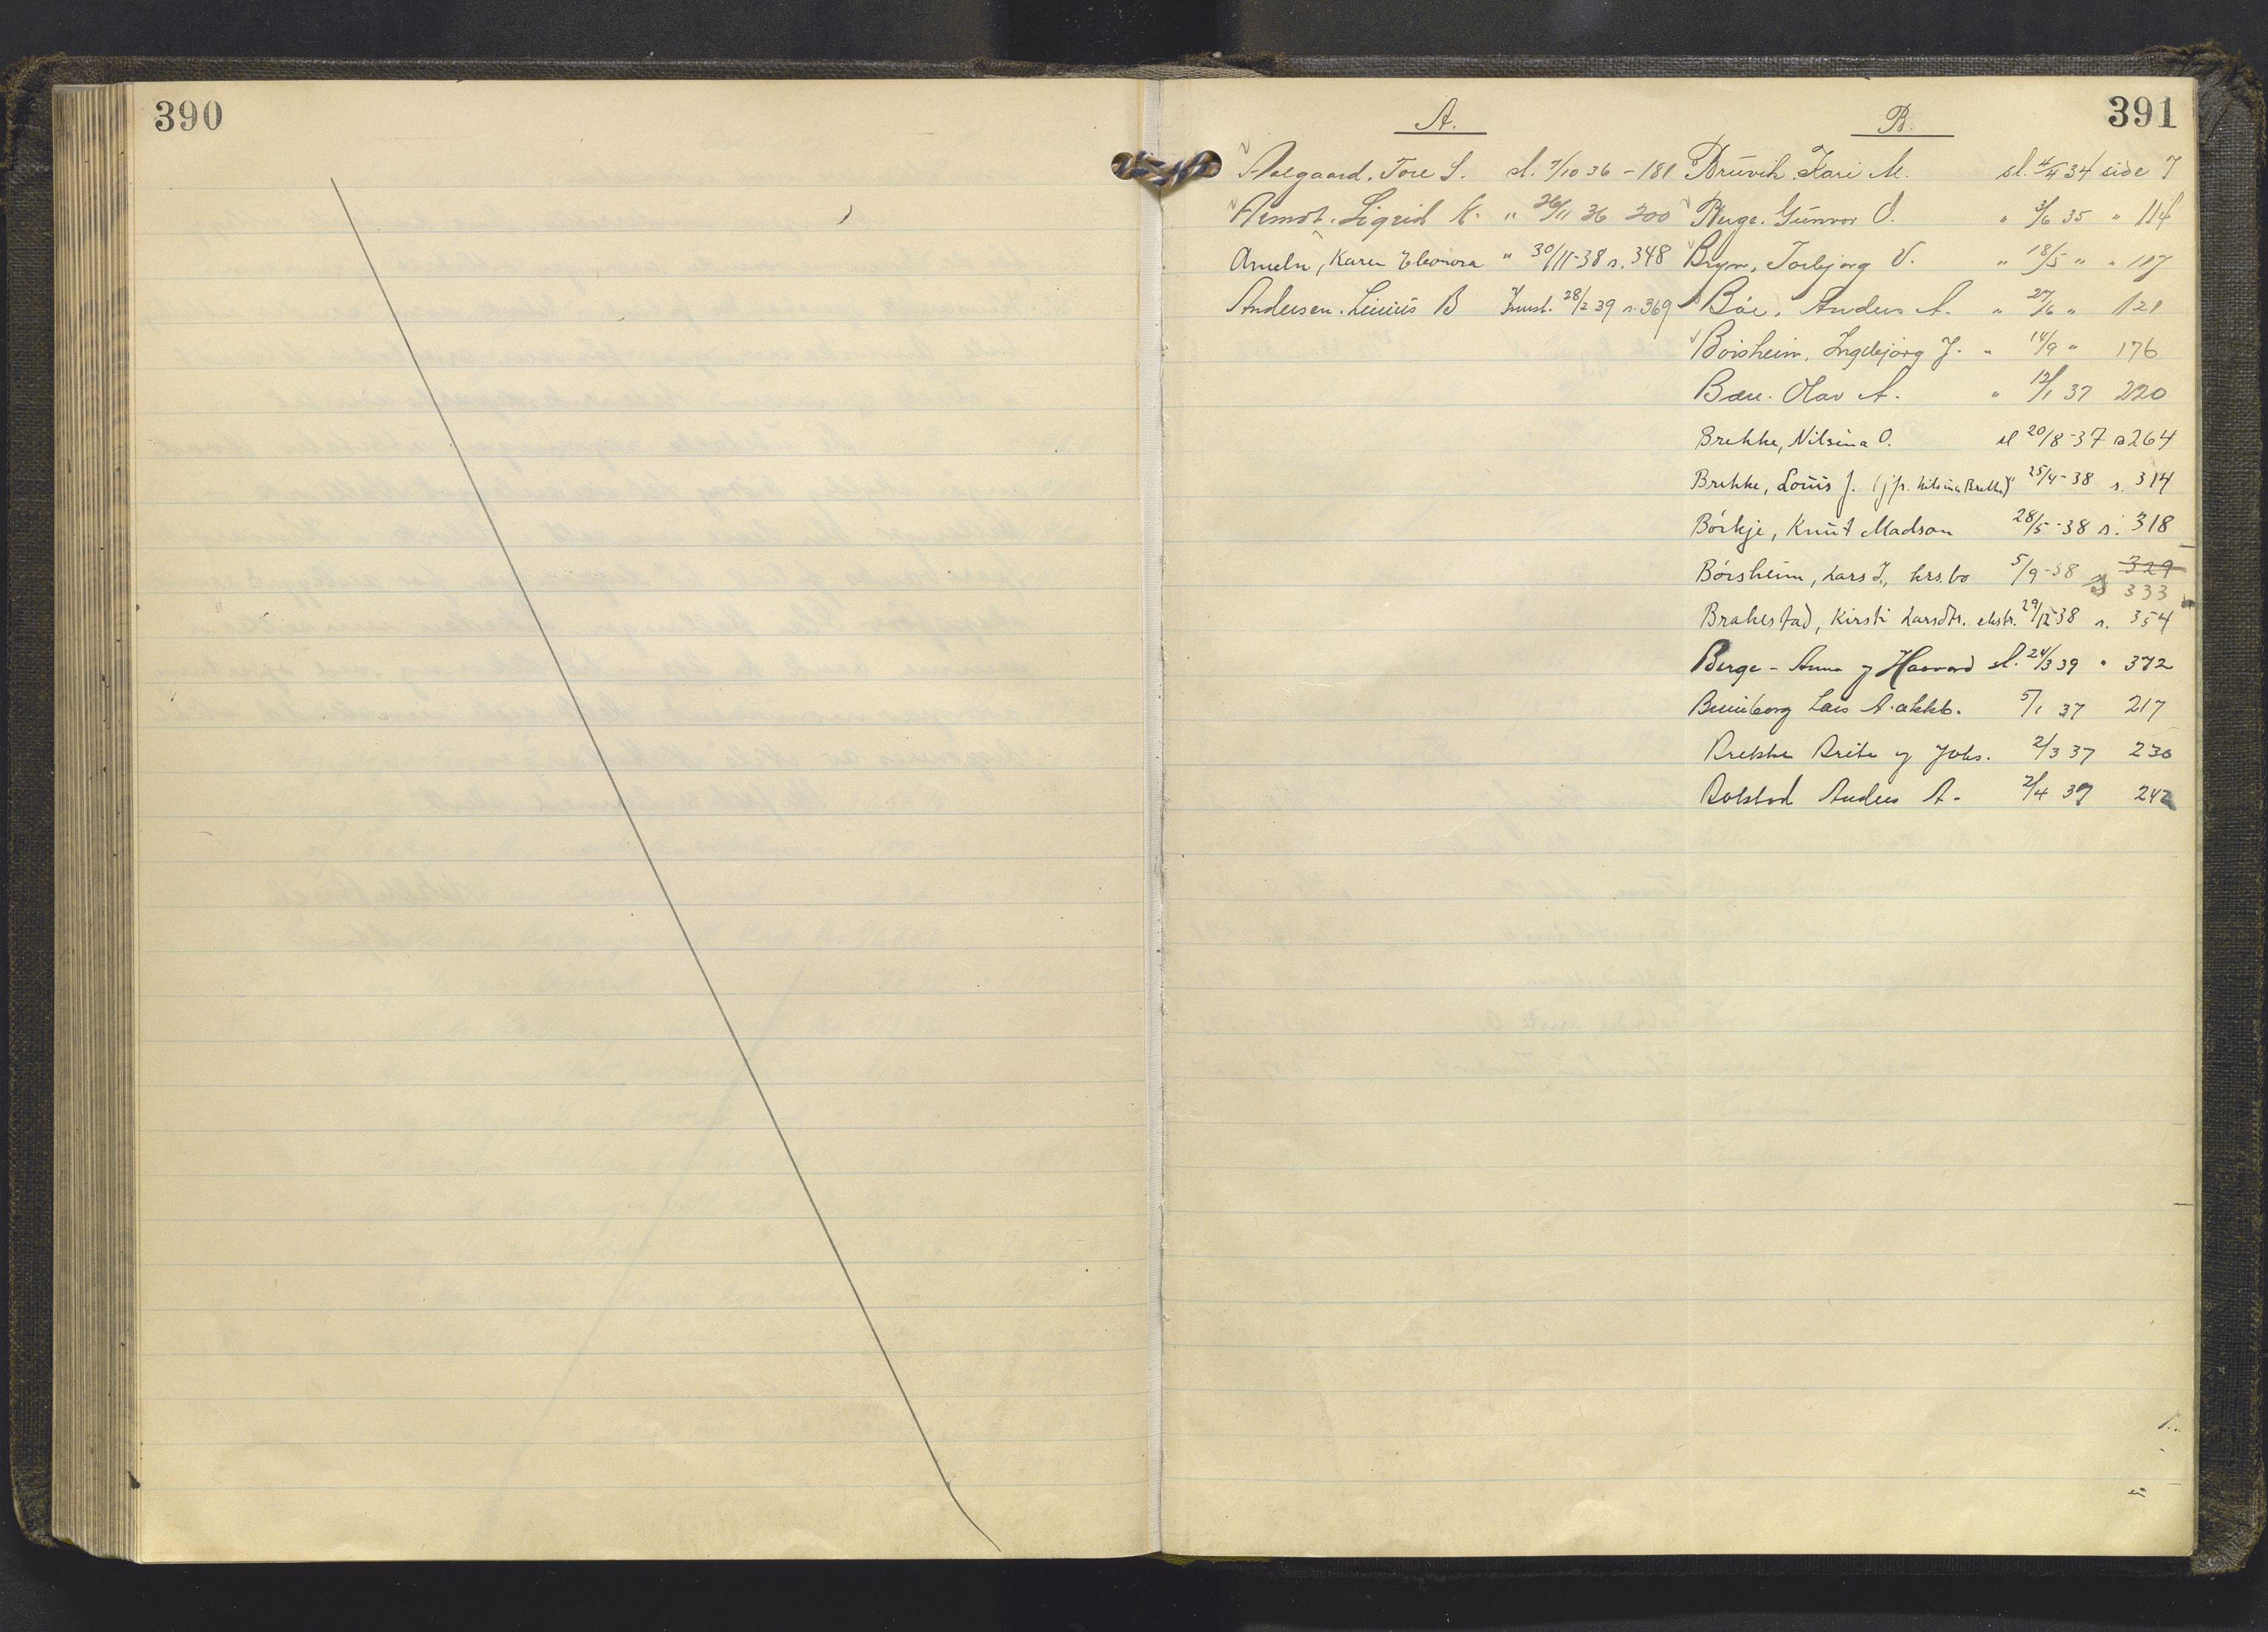 390
391
A.
Aalgaard. Tore S. sl. 7/10 36 - 181
Arndt. Sigrid K. " 26/11 36 200
Ameln, Karen Eleonora " 30/11-38 s. 348
Andersen. B 28/2 39 s. 369
B.
Bruvik. Kari M. sl. 4/4 34 side 7
Berge. Gunvor O. " 3/6 35 " 114
Bryn, Torbjørg V. " 18/5 " " 107
Bøe, Anders A. " 27/6 " 121
Børsheim, Ingebjørg J. " 14/9 " 176
Bære. Olav A. " 12/1 37 220
Brekke, Nilsina O. sl 20/8-37 s 264
Brekke, Louis J. (jfr. Nilsina Brekke) " 25/4-38 s. 314
Børkje, Knut Madson 28/5-38 s. 318
Børsheim, Lars J., krs.bo 5/9-38 s 329 333
Brakestad, Kirsti Larsdtr. ekstr. 29/12-38 s. 354
Berge - Anna og Haavard sl. 24/3 39 " 372
Lars A. 5/1 37 217
Brekke Brita og Johs. 2/3 37 230
Bolstad Anders A. 2/4 37 242